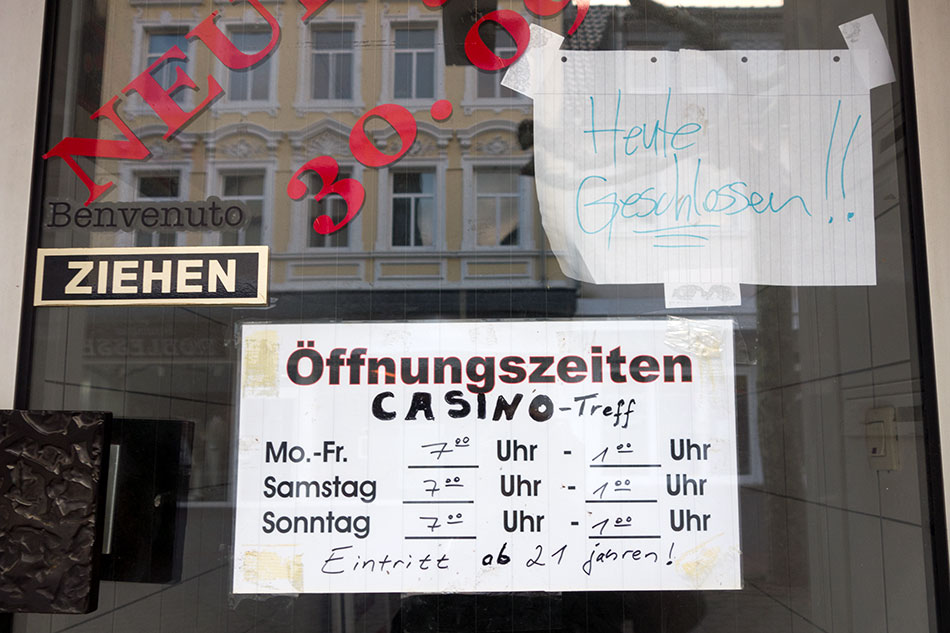 NEUE
30.09
Benvenuto
ZIEHEN
Heute
Geschlossen!!
Öffnungszeiten
CASINO-Treff
Mo.-Fr. 7⁰⁰ Uhr - 1⁰⁰ Uhr
Samstag 7⁰⁰ Uhr - 1⁰⁰ Uhr
Sonntag 7⁰⁰ Uhr - 1⁰⁰ Uhr
Eintritt ab 21 jahren!